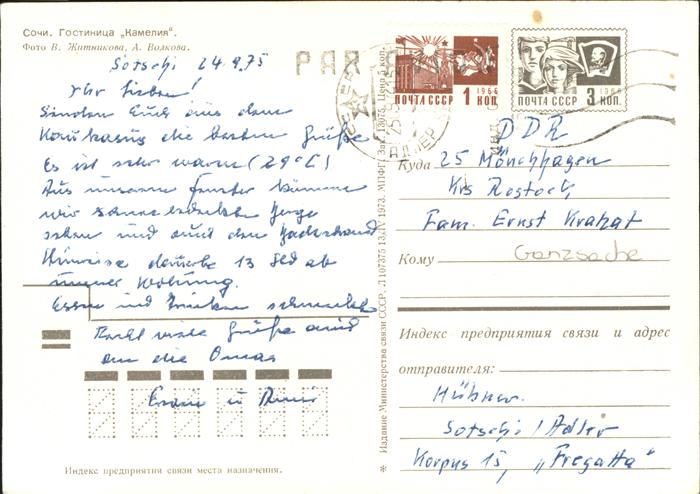 Сочи. Гостиница „Камелия“.
Фото В. Житникова, А. Волкова.
Sotschi 24.9.75
Ihr Lieben!
Senden Euch aus dem
Kaukasus die besten Grüße
Es ist sehr warm (29°C)
Aus unserem Fenster können
wir schneebedeckte Berge
sehen und auch den Badestrand
13
unserer Wohnung.
Essen und Trinken schmeckt
Recht viele Grüße auch
an die Omas
Erwin u.
Индекс предприятия связи места назначения.
PAR AVION
АДЛЕР
ПОЧТА СССР 1 КОП. 1966
ПОЧТА СССР 3 КОП. 1966
Издание Министерства связи СССР. Л 107375 13.IV 1973. МПФГ. Зак. 13075. Цена 5 коп.
DDR
Куда 25 Mönchhagen
Krs Rostock
Fam. Ernst Krahat
Кому Ganzsache
Индекс предприятия связи и адрес
отправителя:
Hübner
Sotschi / Adler
Korpus 15, „Fregatta“